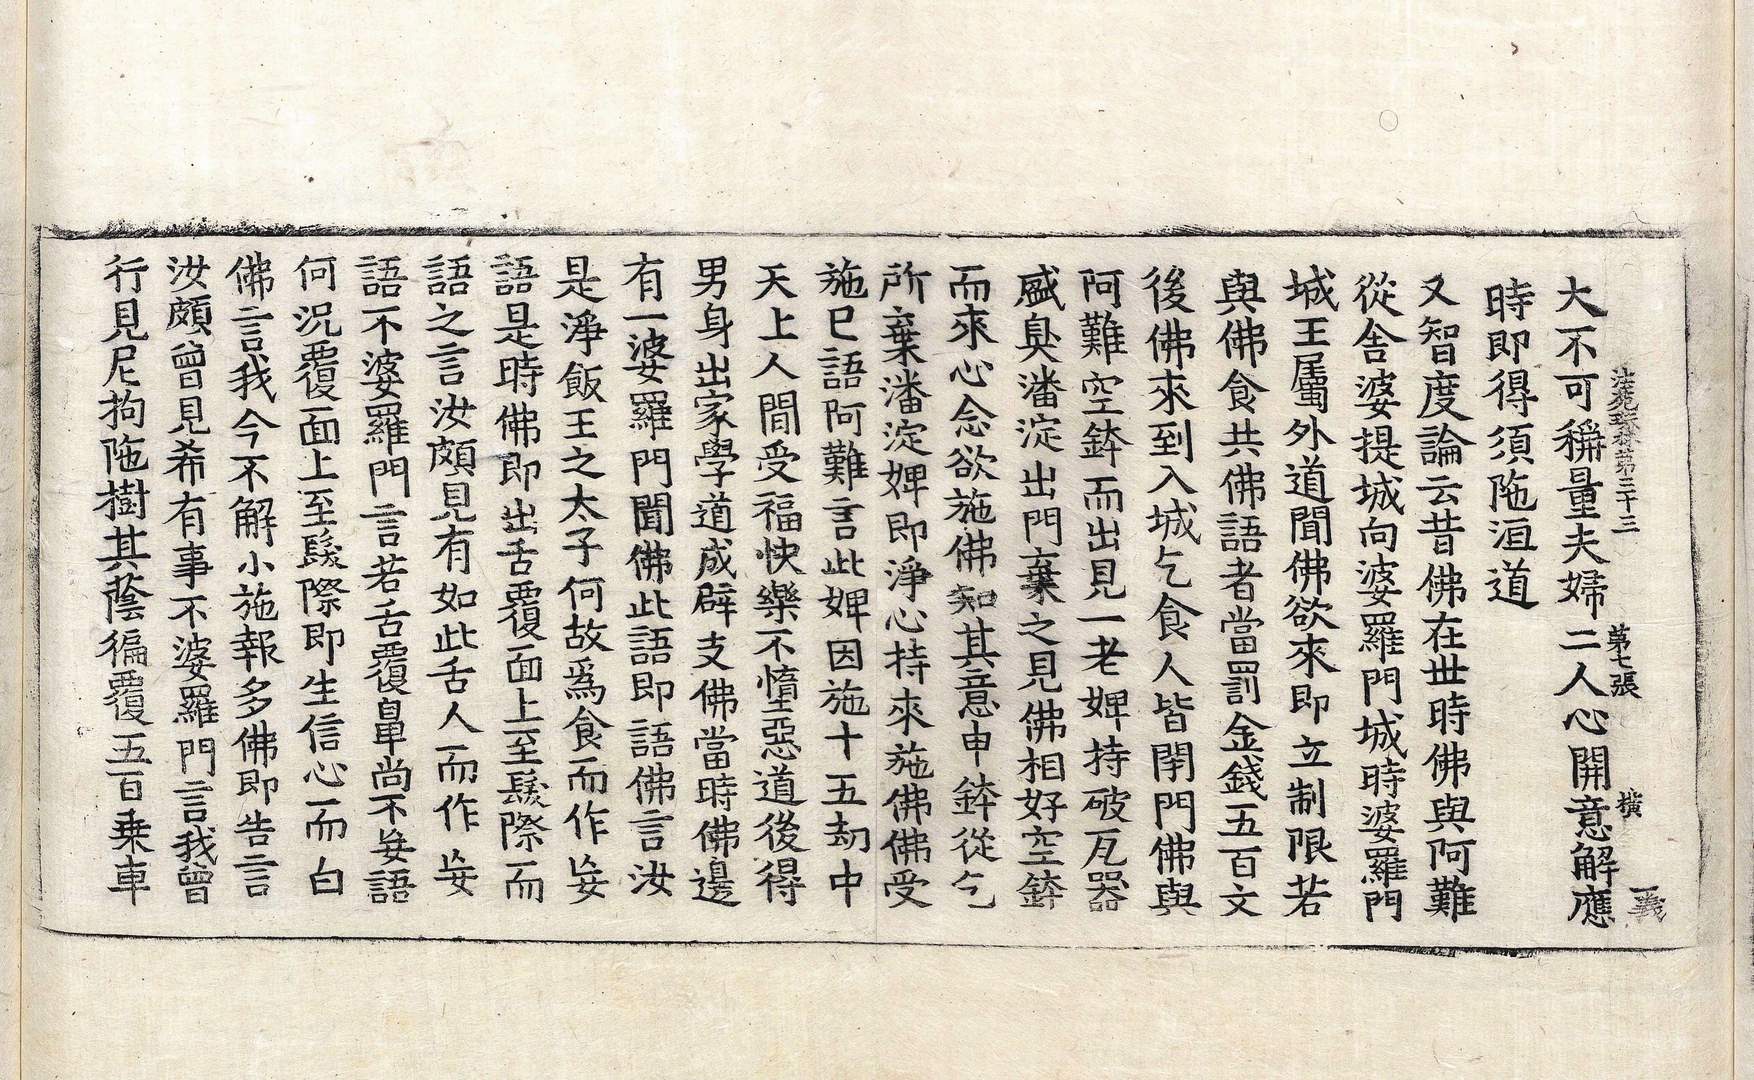 法苑珠林第三十三 第七張 橫 義
大不可稱量夫婦二人心開意解應
時即得須陁洹道
又智度論云昔佛在世時佛與阿難
從舍婆提城向婆羅門城時婆羅門
城王屬外道聞佛欲來即立制限若
與佛食共佛語者當罰金錢五百文
後佛來到入城乞食人皆閇門佛與
阿難空鉢而出見一老婢持破瓦器
盛臭潘淀出門棄之見佛相好空鉢
而來心念欲施佛知其意申鉢從乞
所棄潘淀婢即淨心持來施佛佛受
施已語阿難言此婢因施十五劫中
天上人間受福快樂不墮惡道後得
男身出家學道成辟支佛當時佛邊
有一婆羅門聞佛此語即語佛言汝
是淨飯王之太子何故爲食而作妄
語是時佛即出舌覆面上至髮際而
語之言汝頗見有如此舌人而作妄
語不婆羅門言若舌覆鼻尚不妄語
何況覆面上至髮際即生信心而白
佛言我今不解小施報多佛即告言
汝頗曾見希有事不婆羅門言我曾
行見尼拘陁樹其蔭徧覆五百乗車